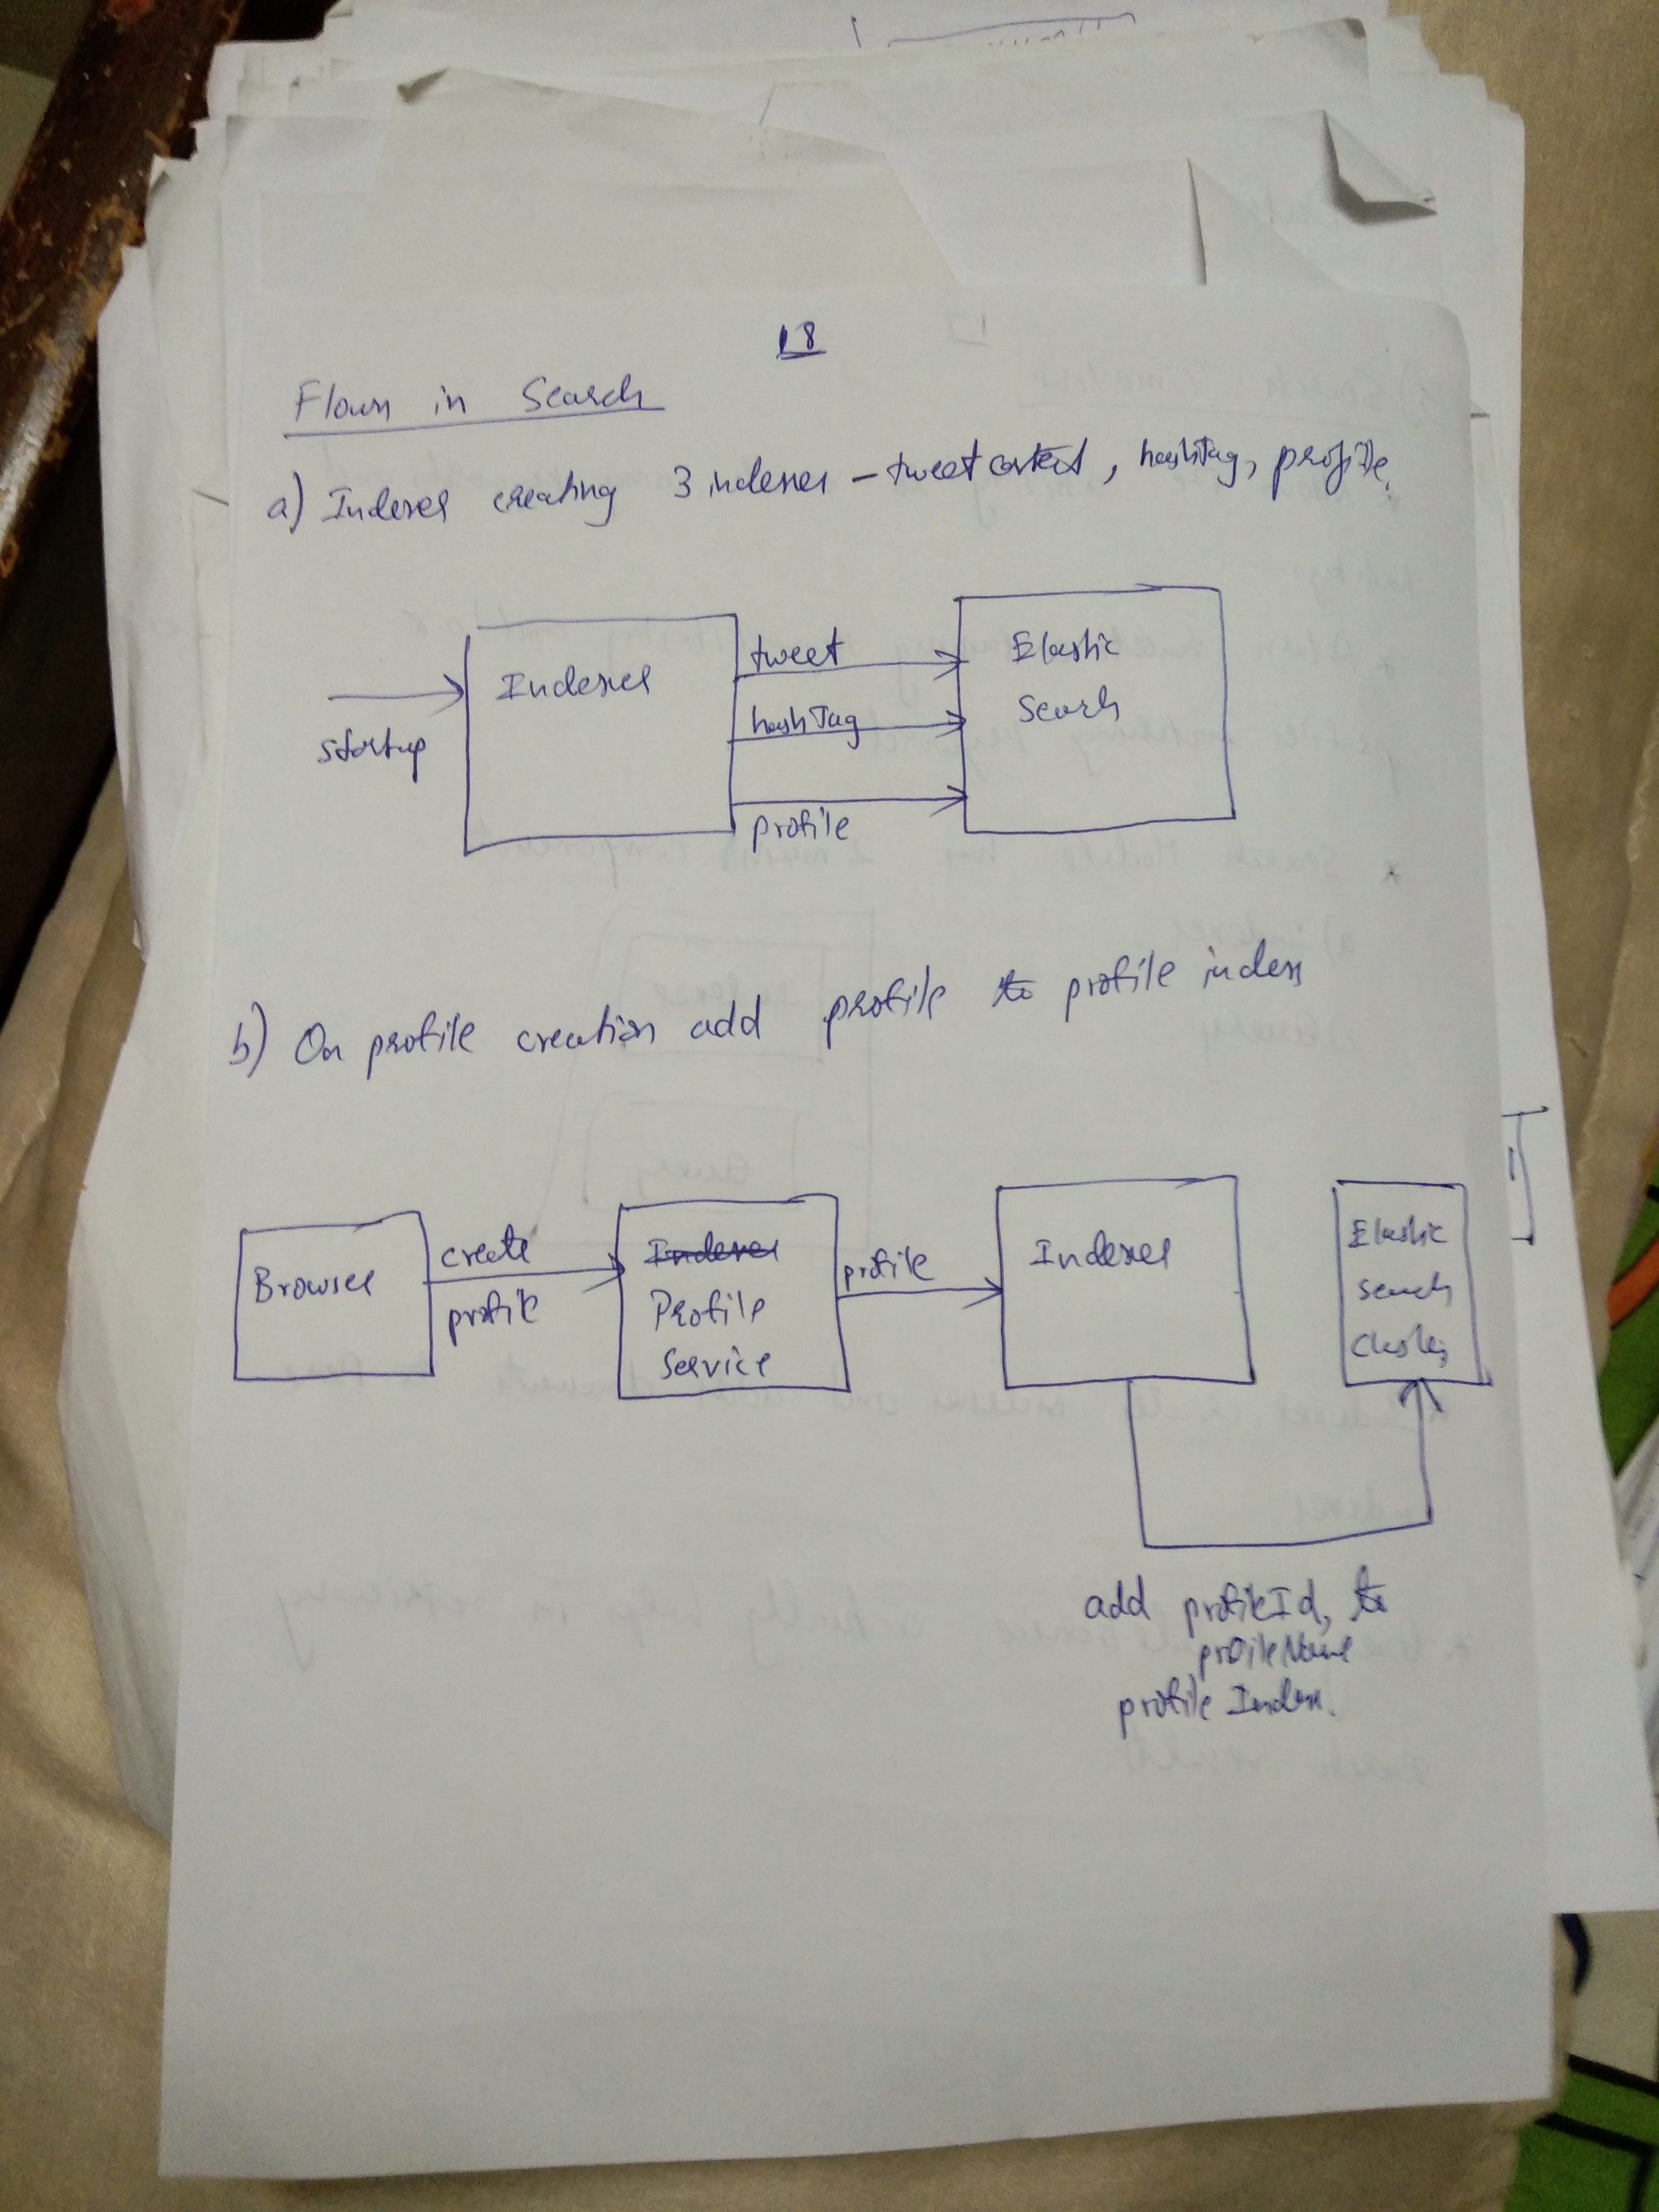 18
Flows in Search
a) Indexer creating 3 indexes - tweet content, hashTag, profile.
startup
Indexer
tweet
hashTag
profile
Elastic
Search
b) On profile creation add profile to profile index
Browser
create
profile
Indexer
Profile
Service
profile
Indexer
Elastic
search
Cluster
add profileId, to
profileName
profile Index.